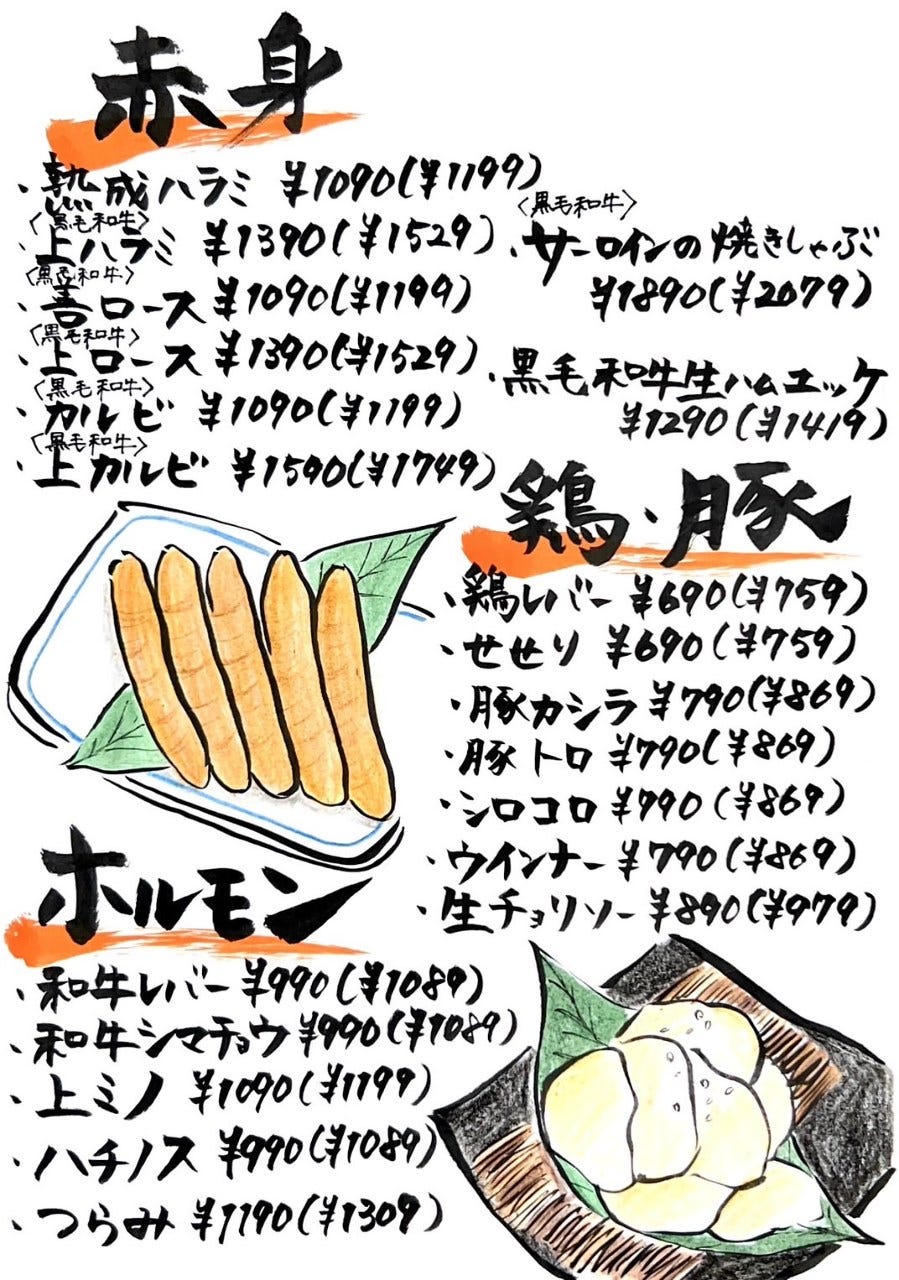 赤身
・熟成ハラミ ¥1090(¥1199)
〈黒毛和牛〉
・上ハラミ ¥1390(¥1529)
〈黒毛和牛〉
・善ロース ¥1090(¥1199)
〈黒毛和牛〉
・上ロース ¥1390(¥1529)
〈黒毛和牛〉
・カルビ ¥1090(¥1199)
〈黒毛和牛〉
・上カルビ ¥1590(¥1749)
〈黒毛和牛〉
・サーロインの焼きしゃぶ
¥1890(¥2079)
・黒毛和牛生ハムユッケ
¥1290(¥1419)
鶏・豚
・鶏レバー ¥690(¥759)
・せせり ¥690(¥759)
・豚カシラ ¥790(¥869)
・豚トロ ¥790(¥869)
・シロコロ ¥790(¥869)
・ウインナー ¥790(¥869)
・生チョリソー ¥890(¥979)
ホルモン
・和牛レバー ¥990(¥1089)
・和牛シマチョウ ¥990(¥1089)
・上ミノ ¥1090(¥1199)
・ハチノス ¥990(¥1089)
・つらみ ¥1190(¥1309)